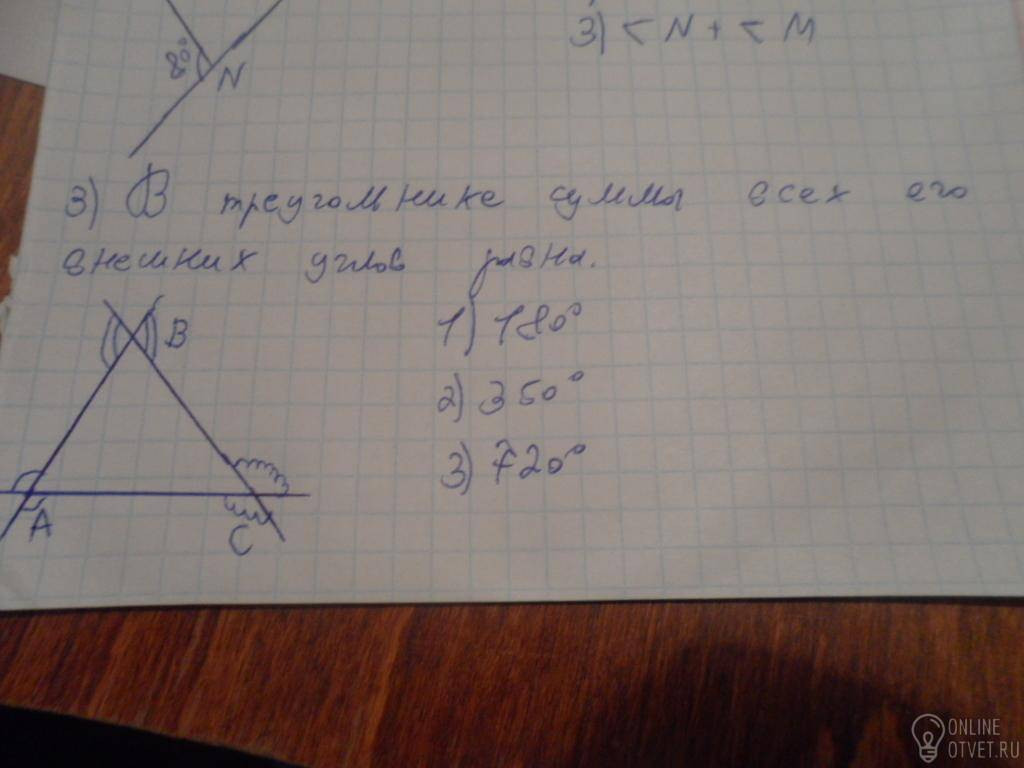 3) < N + < M
80°
N
3) В треугольнике суммы всех его
внешних углов равна.
B
1) 180°
2) 350°
3) 720°
A
C
ONLINE
OTVET.RU